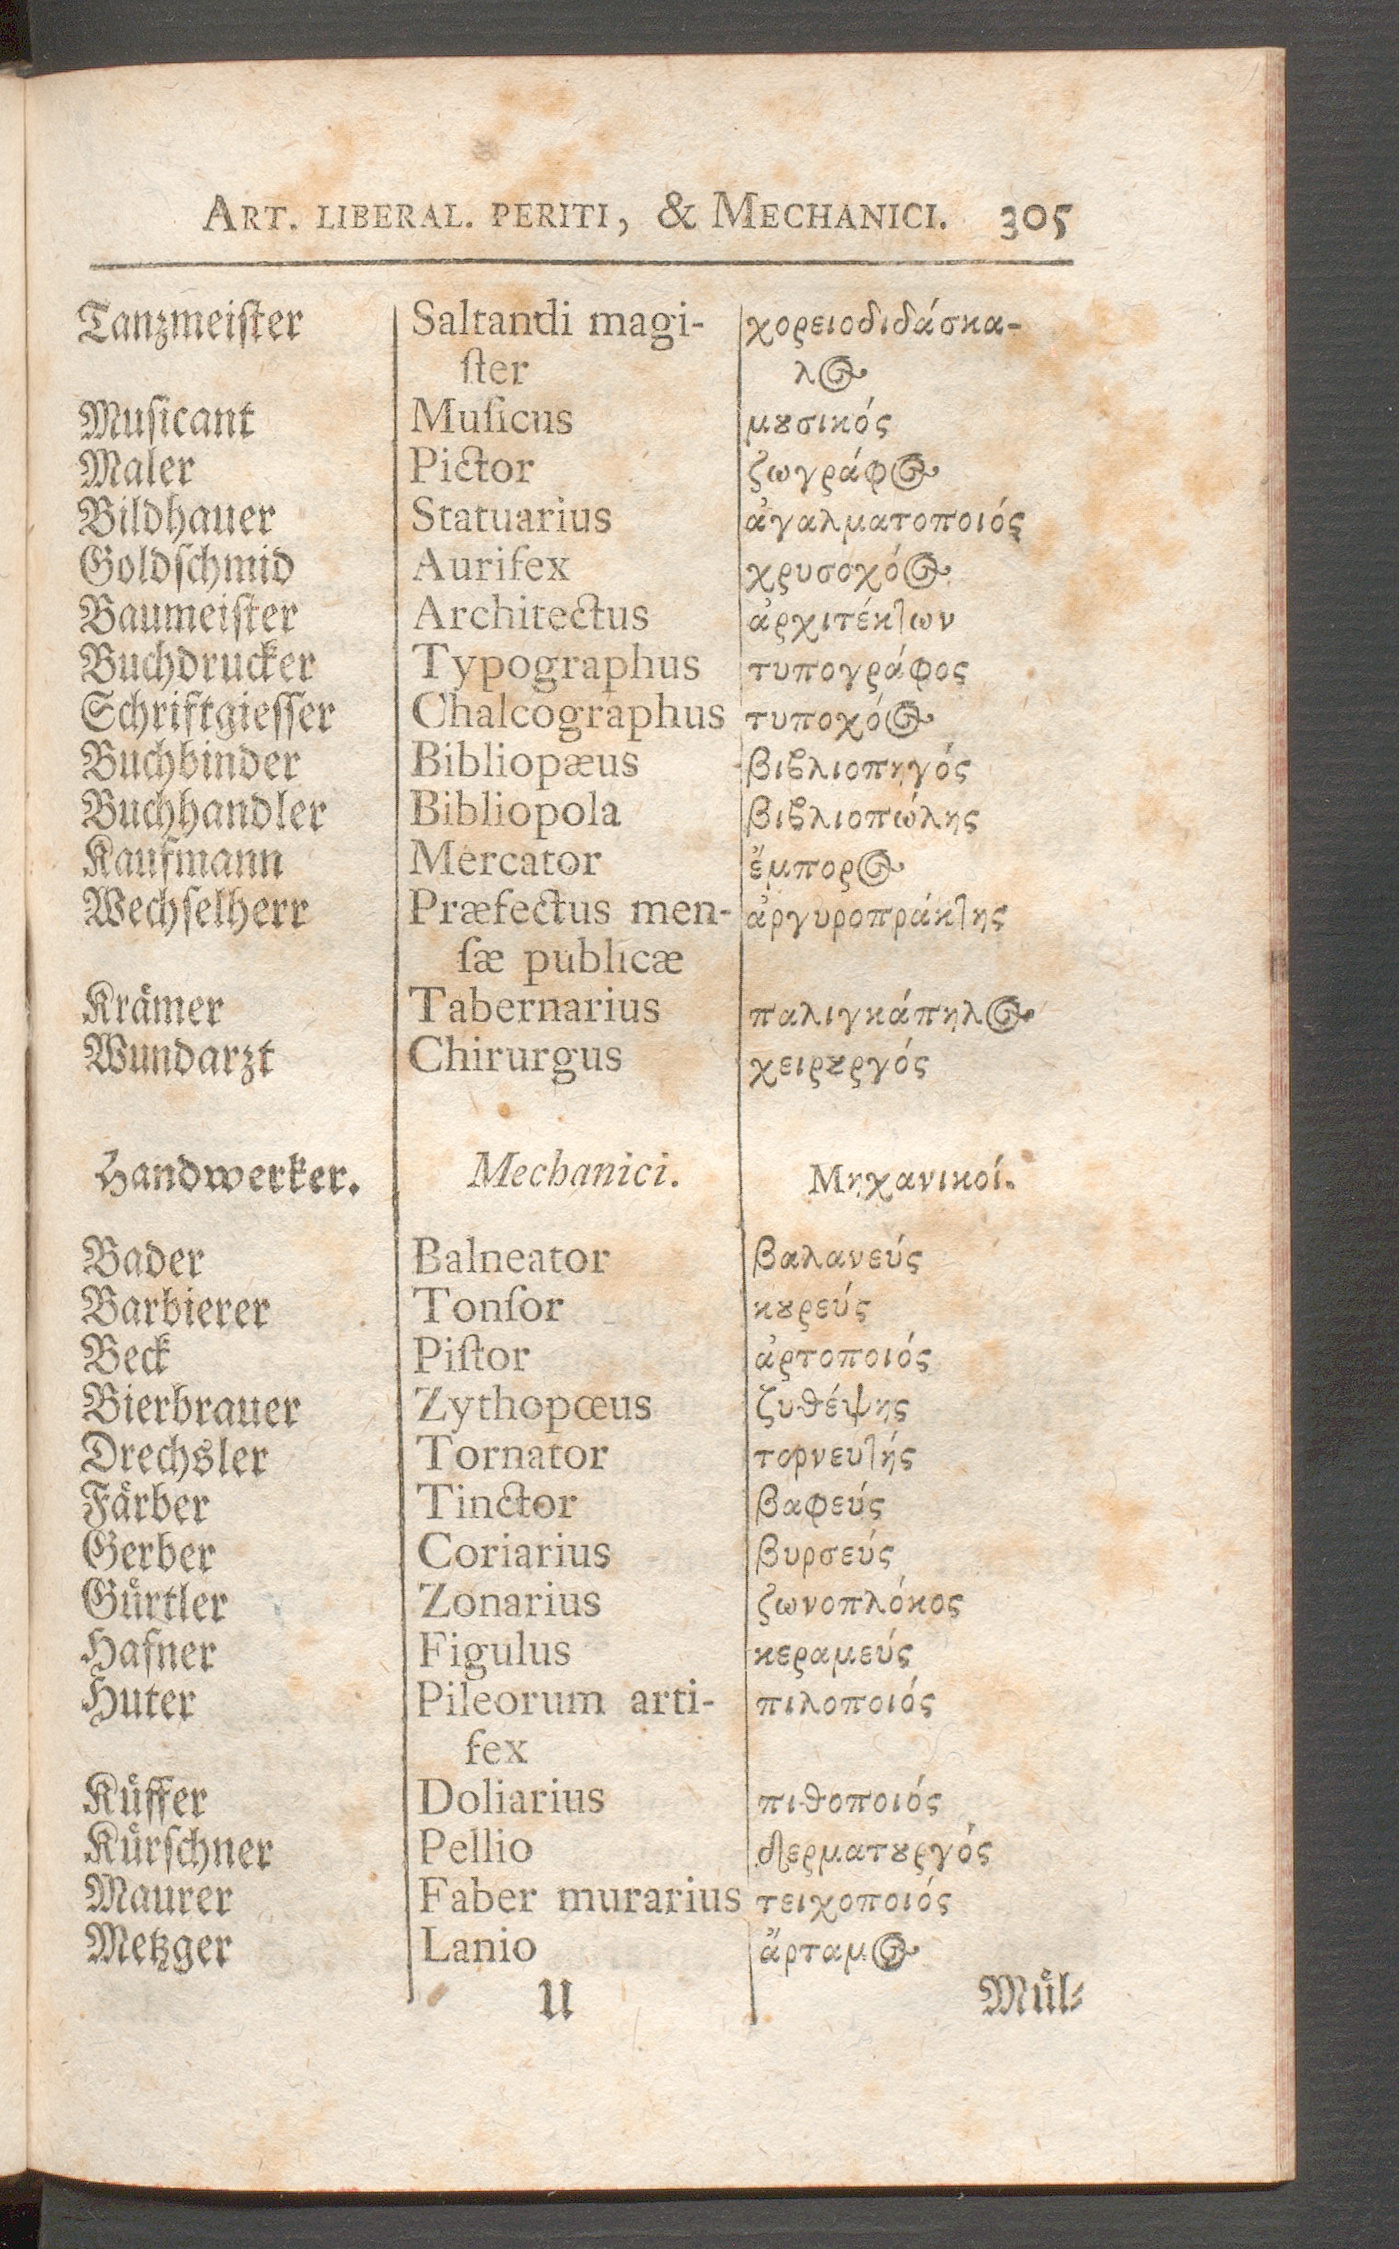 ART. LIBERAL. PERITI, & MECHANICI. 305
Tanzmeister Saltandi magi- χορειοδιδάσκα-
ſter λος
Musicant Muſicus μȣσικός
Maler Pictor ζωγράφος
Bildhauer Statuarius ἀγαλματοποιός
Goldschmid Aurifex χρυσοχόος
Baumeister Architectus ἀρχιτέκτων
Buchdrucker Typographus τυπογράφος
Schriftgiesser Chalcographus τυποχόος
Buchbinder Bibliopæus βιβλιοπηγός
Buchhandler Bibliopola βιβλιοπώλης
Kaufmann Mercator ἔμπορος
Wechselherr Præfectus men- ἀργυροπράκτης
ſæ publicæ
Krämer Tabernarius παλιγκάπηλος
Wundarzt Chirurgus χειρȣργός
Handwerker. Mechanici. Μηχανικοί.
Bader Balneator βαλανεύς
Barbierer Tonſor κȣρεύς
Beck Piſtor ἀρτοποιός
Bierbrauer Zythopœus ζυθέψης
Drechsler Tornator τορνευτής
Färber Tinctor βαφεύς
Gerber Coriarius βυρσεύς
Gürtler Zonarius ζωνοπλόκος
Hafner Figulus κεραμεύς
Huter Pileorum arti- πιλοποιός
fex
Küffer Doliarius πιθοποιός
Kürschner Pellio δερματȣργός
Maurer Faber murarius τειχοποιός
Metzger Lanio ἄρταμος
U Mül-